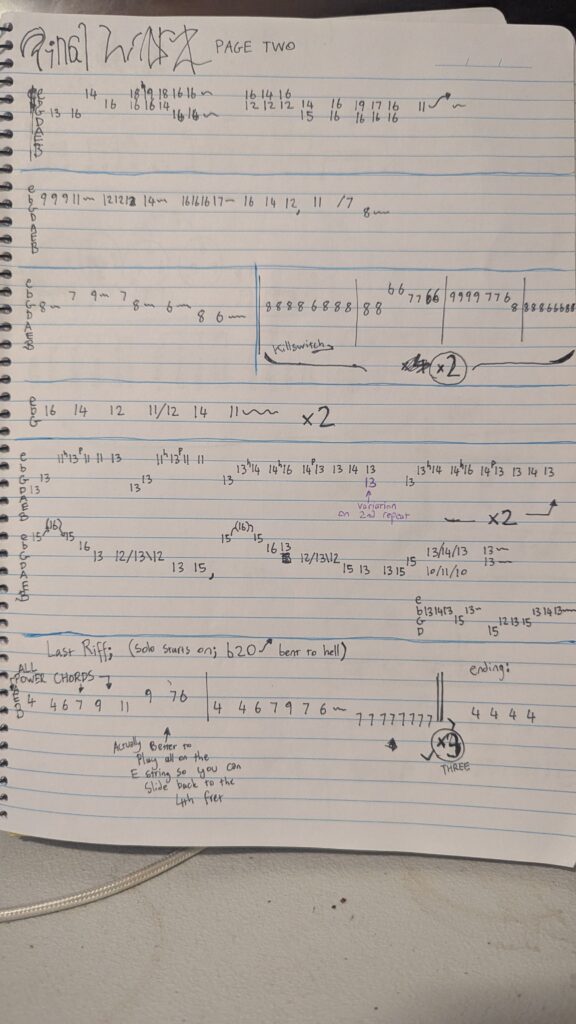 PAGE TWO
e 14 18 h 19 18 16 16 ~ 16 14 16
b 16 16 16 14 12 12 12 14 16 19 17 16 11
G 13 16 16 16 ~ 15 16 16 16
D
A
E
B
e
b 9 9 9 11 ~ 12 12 12 14 ~ 16 16 16 17 ~ 16 14 12, 11 /7
G 8 ~
D
A
E
B
e
b 7 9 ~ 7 6 6
G 8 ~ 8 ~ 6 ~ 8 8 8 8 6 8 8 8 | 8 8 7 7 6 6 | 9 9 9 9 7 7 6 | 8 8 8 6 6 8 8
D 8 6 ~ 8
A
E
B
Killswitch
x2
e
b 16 14 12 11/12 14 11 ~~~ x2
G
e
b 11 h 13 p 11 11 13 11 h 13 p 11 11 13 h 14 14 h 16 14 p 13 13 14 13 13 h 14 14 h 16 14 p 13 13 14 13
G 13 13 13 13
D 13 13 13
A
E
B
variation
on 2nd repeat
x2
e 15 (16) 15 15 (16) 15
b 16 16 13 13/14/13 13 ~
G 13 12/13\12 12/13\12 15 13 ~
D 13 15, 15 13 13 15 10/11/10
A
E
B
e
b 13 14 13 13 ~ 13 14 13 ~
G 15 12 13 15
D 15
Last Riff; (Solo starts on; b20 bent to hell)
ALL
POWER CHORDS
ending:
4 4 6 7 9 11 9 7 6 | 4 4 6 7 9 7 6 ~ 7 7 7 7 7 7 7 7 4 4 4 4
x3
THREE
Actually Better to
Play all on the
E string so you can
Slide back to the
4th fret